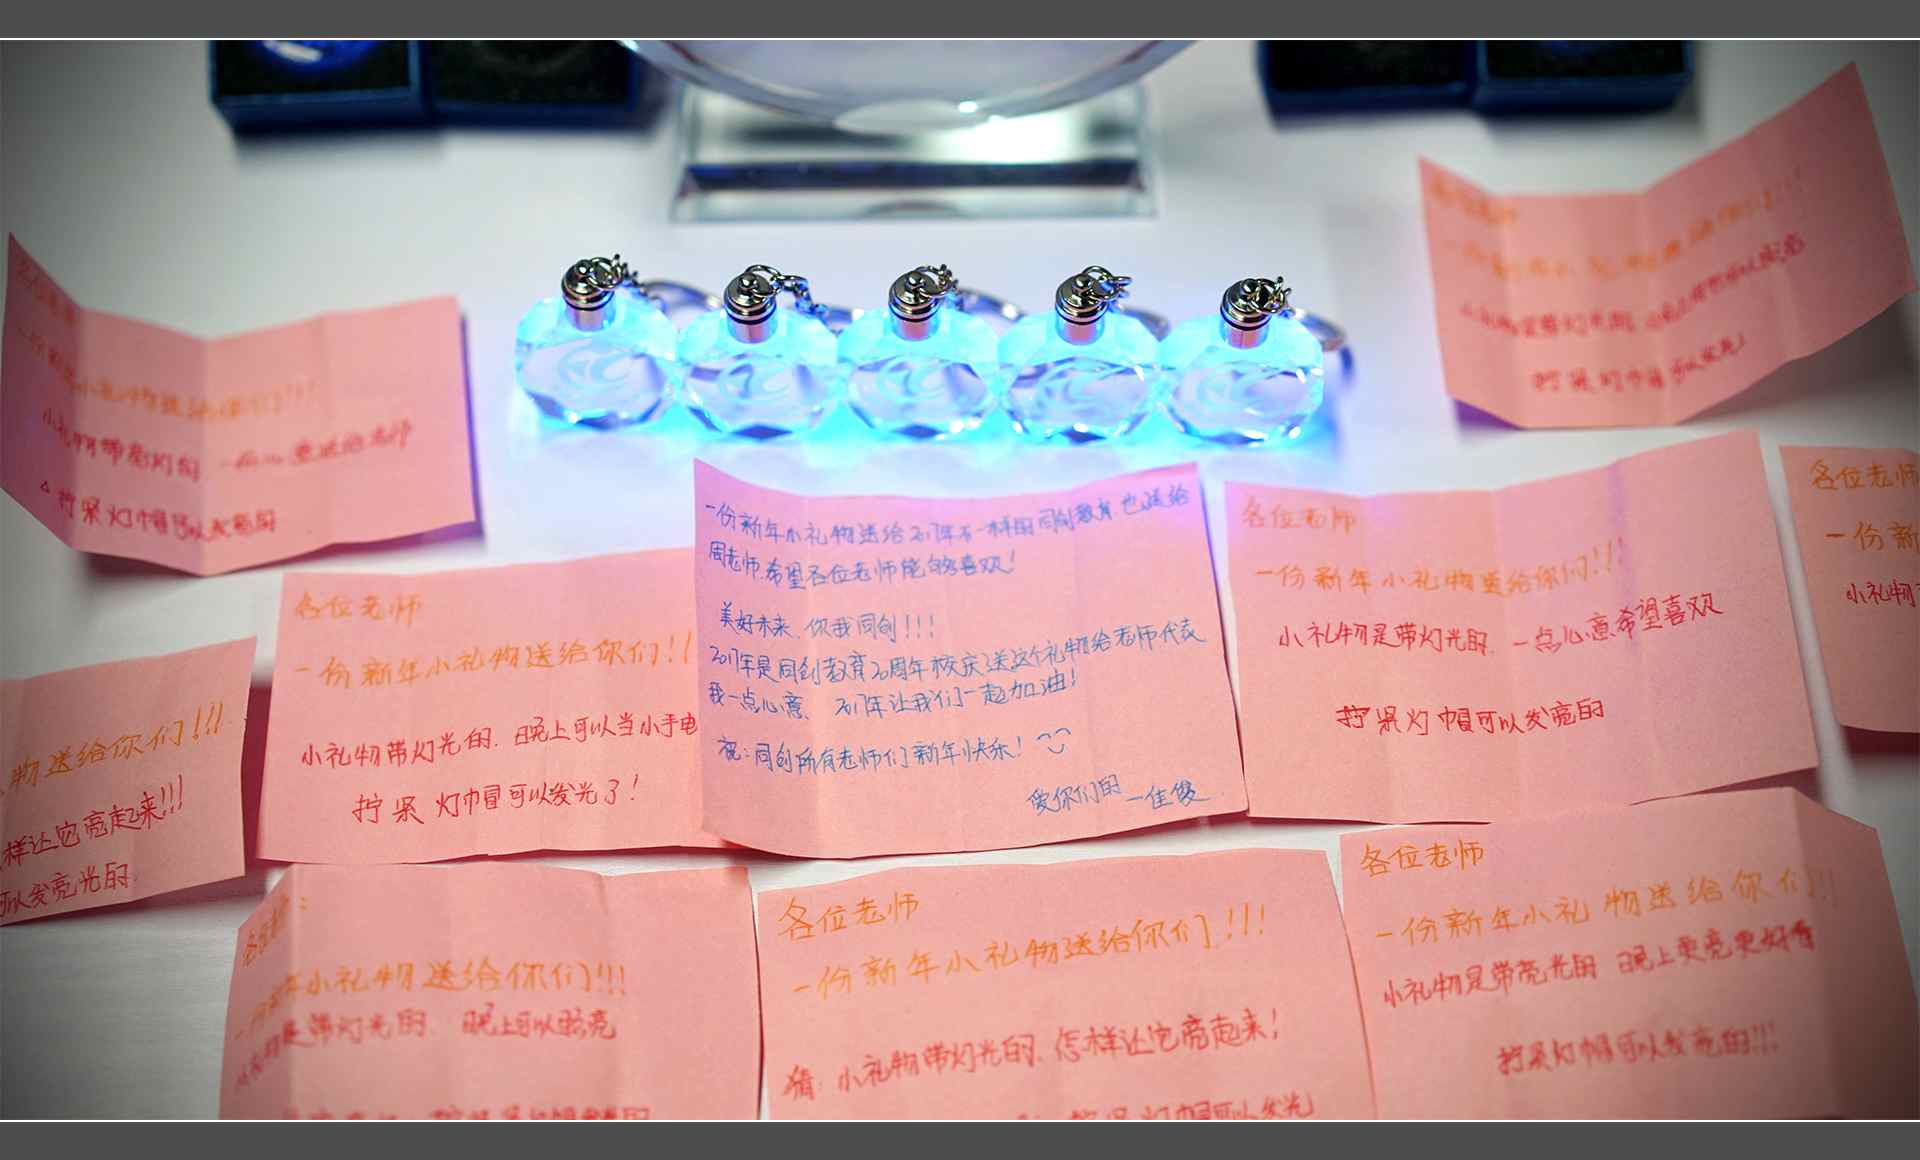 一份新年小礼物送给你们!!!
小礼物带亮灯的 一点心意送给老师
拧紧灯帽可以发亮的
拧紧灯帽可以发光!
一份新年小礼物送给2017年不一样的同创教育也送给
周老师.希望各位老师能够喜欢!
美好未来、你我同创!!!
2017年是同创教育20周年校庆送这个礼物给老师代表
我一点心意、2017年让我们一起加油!
祝:同创所有老师们新年快乐!
爱你们的—佳俊
各位老师
一份新年小礼物送给你们!!!
小礼物是带灯光的.一点心意希望喜欢
拧紧灯帽可以发亮的
各位老师
一份新
小礼物
各位老师
一份新年小礼物送给你们!!
小礼物带灯光的.晚上可以当小手电
拧紧灯帽可以发光了!
物送给你们!!!
样让它亮起来!!!
可以发亮光的.
年小礼物送给你们!!!
是带灯光的.晚上可以照亮
各位老师
一份新年小礼物送给你们!!!
猜:小礼物带灯光的.怎样让它亮起来!
拧紧灯帽可以发光
各位老师
一份新年小礼物送给你们!!
小礼物是带亮光的 晚上更亮更好看
拧紧灯帽可以发亮的!!!